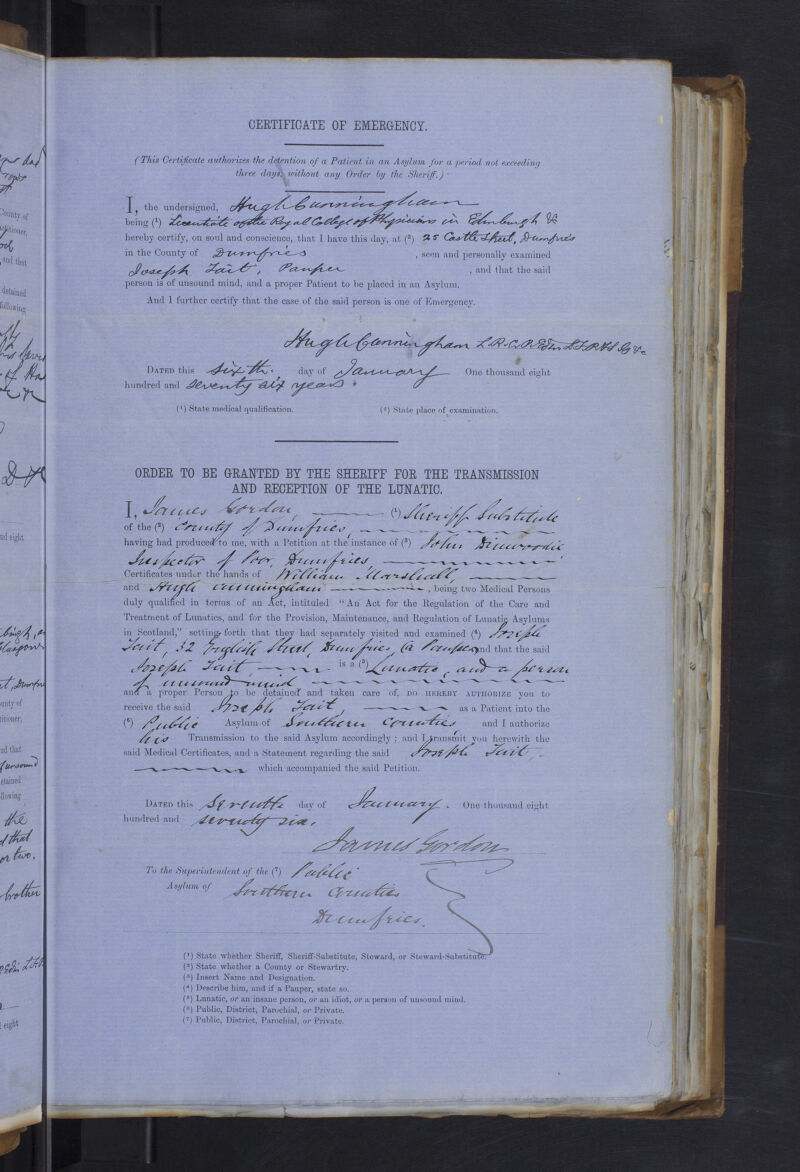 CERTIFICATE OF EMERGENCY.
(This Certificate authorizes the detention of a Patient in an Asylum for a period not exceeding
three days, without any Order by the Sheriff.)
I, the undersigned, Hugh Cunningham
being (¹) Licentiate of the Royal College of Physicians in Edinburgh &c
hereby certify, on soul and conscience, that I have this day, at (²) 25 Castle Street, Dumfries
in the County of Dumfries, seen and personally examined
Joseph Tait, Pauper, and that the said
person is of unsound mind, and a proper Patient to be placed in an Asylum.
And I further certify that the case of the said person is one of Emergency.
Hugh Cunningham L.R.C.P. Edin L.F.P.&S. G &c
DATED this sixth day of January One thousand eight
hundred and seventy six years.
(¹) State medical qualification. (²) State place of examination.
ORDER TO BE GRANTED BY THE SHERIFF FOR THE TRANSMISSION
AND RECEPTION OF THE LUNATIC.
I, James Gordon, (¹) Sheriff Substitute
of the (²) County of Dumfries,
having had produced to me, with a Petition at the instance of (³) John Dinwoodie,
Inspector of Poor, Dumfries,
Certificates under the hands of William Marshall,
and Hugh Cunningham, being two Medical Persons
duly qualified in terms of an Act, intituled "An Act for the Regulation of the Care and
Treatment of Lunatics, and for the Provision, Maintenance, and Regulation of Lunatic Asylums
in Scotland," setting forth that they had separately visited and examined (⁴) Joseph
Tait, 32 English Street, Dumfries, (a Pauper) and that the said
Joseph Tait is a (⁵) Lunatic, and a person
of unsound mind
and a proper Person to be detained and taken care of, DO HEREBY AUTHORIZE you to
receive the said Joseph Tait as a Patient into the
(⁶) Public Asylum of Southern Counties and I authorize
his Transmission to the said Asylum accordingly; and I transmit you herewith the
said Medical Certificates, and a Statement regarding the said Joseph Tait
which accompanied the said Petition.
DATED this Seventh day of January. One thousand eight
hundred and seventy six.
James Gordon
To the Superintendent of the (⁷) Public
Asylum of Southern Counties
Dumfries.
(¹) State whether Sheriff, Sheriff-Substitute, Steward, or Steward-Substitute.
(²) State whether a County or Stewartry.
(³) Insert Name and Designation.
(⁴) Describe him, and if a Pauper, state so.
(⁵) Lunatic, or an insane person, or an idiot, or a person of unsound mind.
(⁶) Public, District, Parochial, or Private.
(⁷) Public, District, Parochial, or Private.